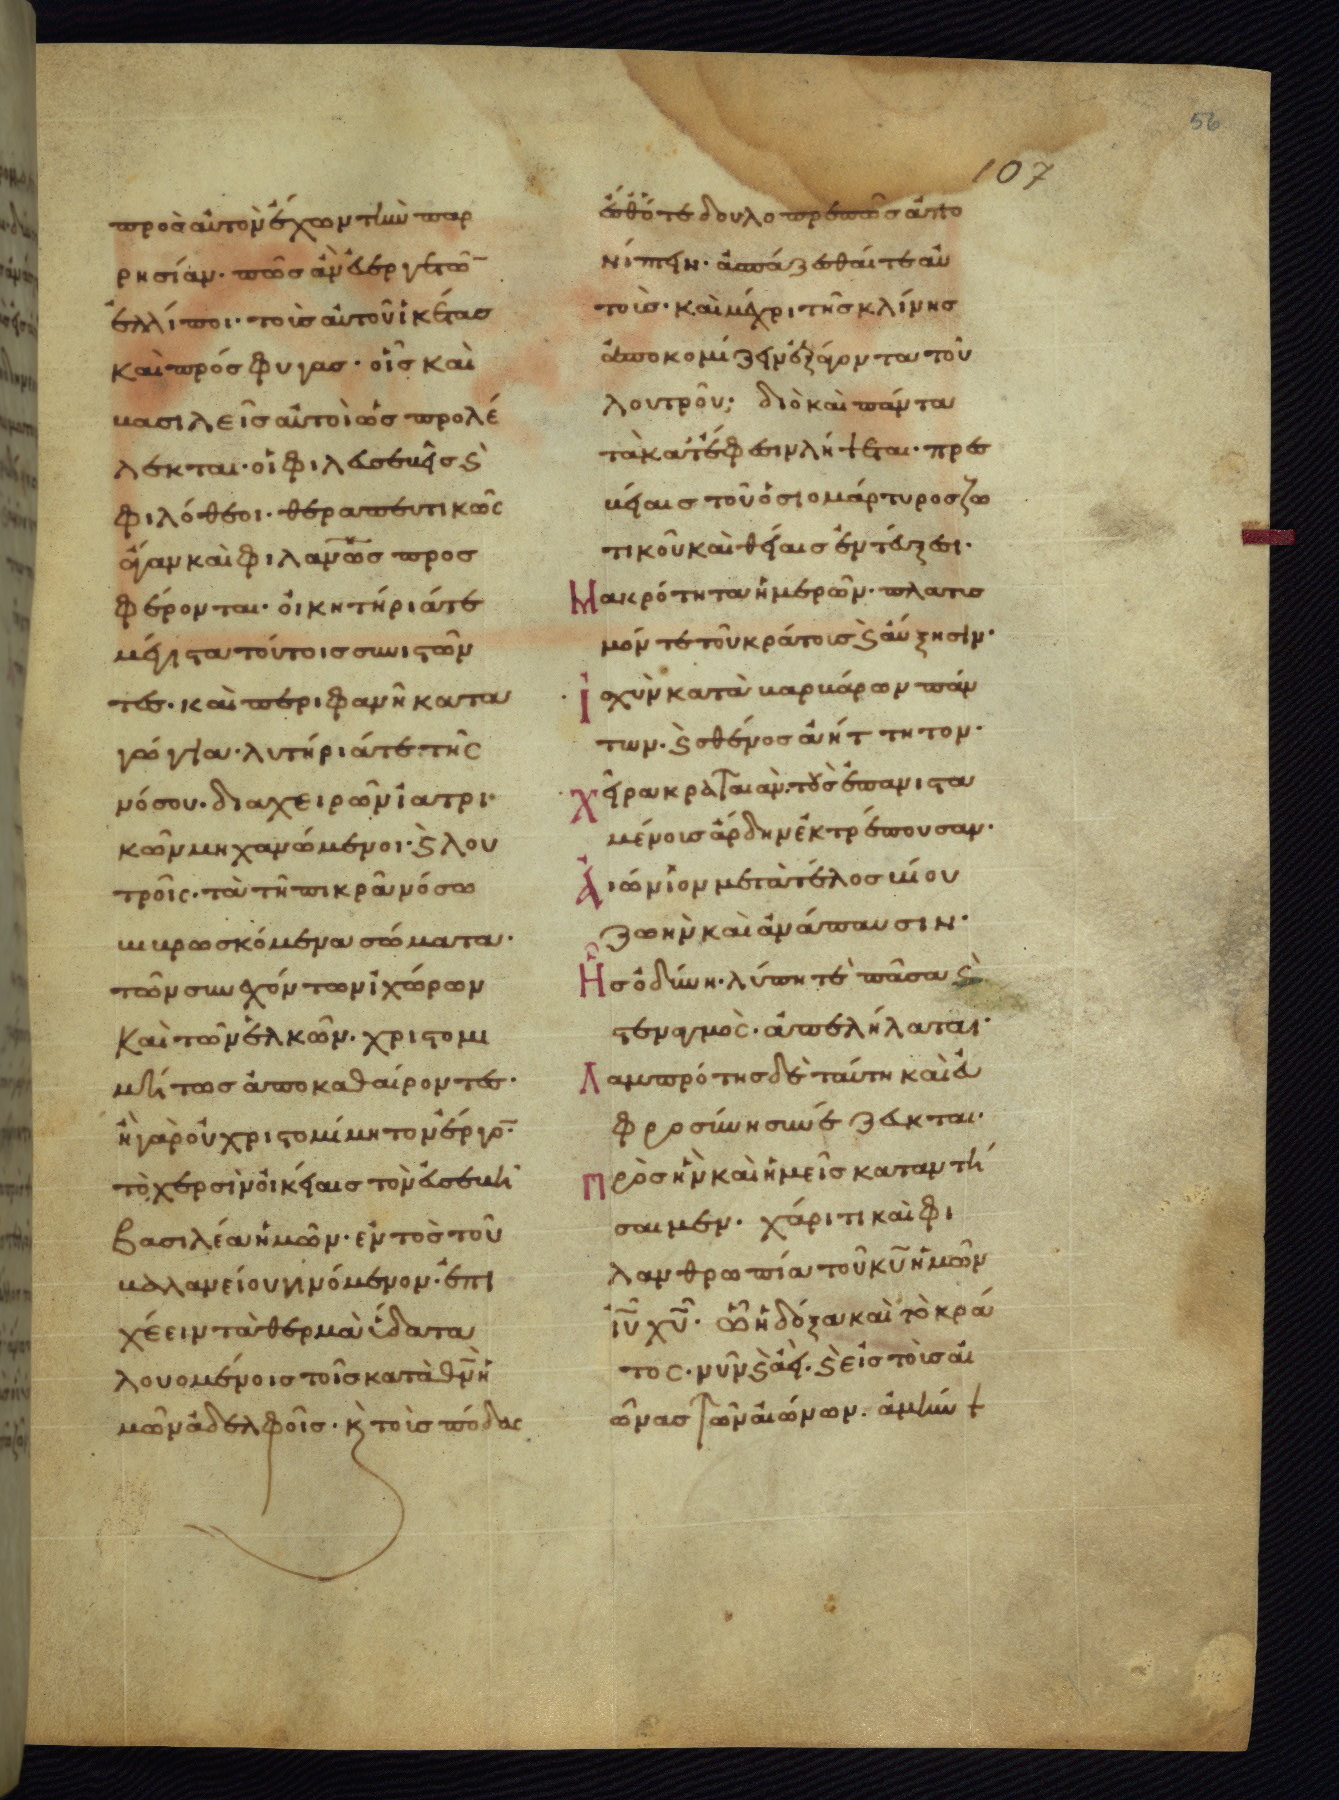 56
107
πρὸς αὐτὸν ἔχων τὴν παρ
ρησίαν· πῶς ἂν εὐεργετῶ̅
ἐλλίποι· τοῖς αὐτοῦ ἱκέτας
καὶ πρόσφυγας· οἷς καὶ
βασιλεῖς αὐτοὶ ὡς προλέ
λεκται· οἱ φιλευσεβεῖς ϛ̀
φιλόθεοι· θεραπευτικῶς
ἄγαν καὶ φιλανῶ̅ς προσ
φέρονται· οἰκητήριά τε
μέγιστα τούτοις συνιστῶν
τες· καὶ περιφανῆ κατα
γώγια· λυτήριά τε τῆς
νόσου· διαχειρῶν ἰατρι
κῶν μηχανώμενοι· ϛ̀ λου
τροῖς· τὰ τῆ πικρᾶ νόσω
βιβρωσκόμενα σώματα·
τῶν συνεχόντων ἰχώρων
καὶ τῶν ἑλκῶν· χριστομι
μήτως ἀποκαθαίροντες·
ἢ γὰρ οὐ χριστομίμητον ἔργο̅·
τὸ χερσὶν οἰκείαις τὸν εὐσεβῆ
βασιλέα ἡμῶν· ἐντὸς τοῦ
βαλανείου γινόμενον· ἐπι
χέειν τὰ θερμὰ ὕδατα
λουομένοις τοῖς κατὰ θν̅ ἡ
μῶν ἀδελφοῖς· κ̀ τοὺς πόδας
ἔσθ' ὅτε δουλοπρεπῶς ἀπο
νίπτειν· ἀσπάζεσθαί τε αὐ
τοὺς· καὶ μέχρι τῆς κλίνης
ἀποκομίζειν ἐξάγοντα τοῦ
λουτροῦ; διὸ καὶ πάντα
τὰ κατ' ἔφεσιν λήψεται· πρεσ
βείαις τοῦ ὁσιομάρτυρος ζω
τικοῦ καὶ θείαις ἐντεύξεσι·
Μακρότητα ἡμερῶν· πλατυσ
μόν τε τοῦ κράτους ϛ̀ αὔξησιν·
Ἰσχὺν κατὰ βαρβάρων πάν
των· ϛ̀ σθένος ἀήττητον·
Χεῖρα κραταιὰν· τοὺς ἐπανιστα
μένους ἄρδην ἐκτρέπουσαν·
Αἰώνιον μετὰ τέλος βίου
ζωὴν καὶ ἀνάπαυσιν·
Ἧς ὀδύνη· λύπη τὲ πᾶσα ϛ̀
στεναγμὸς· ἀπελήλαται·
Λαμπρότης δὲ ταύτη καὶ εὐ
φροσύνη συνέζευκται·
Πρὸς ἣν καὶ ἡμεῖς καταντή
σαιμεν· χάριτι καὶ φι
λανθρωπία τοῦ κυ̅ ἡμῶν
ἰυ̅ χυ̅· ὧ ἡ δόξα καὶ τὸ κρά
τος· νῦν ϛ̀ ἀεὶ· ϛ̀ εἰς τοὺς αἰ
ῶνας τῶν αἰώνων· ἀμήν †